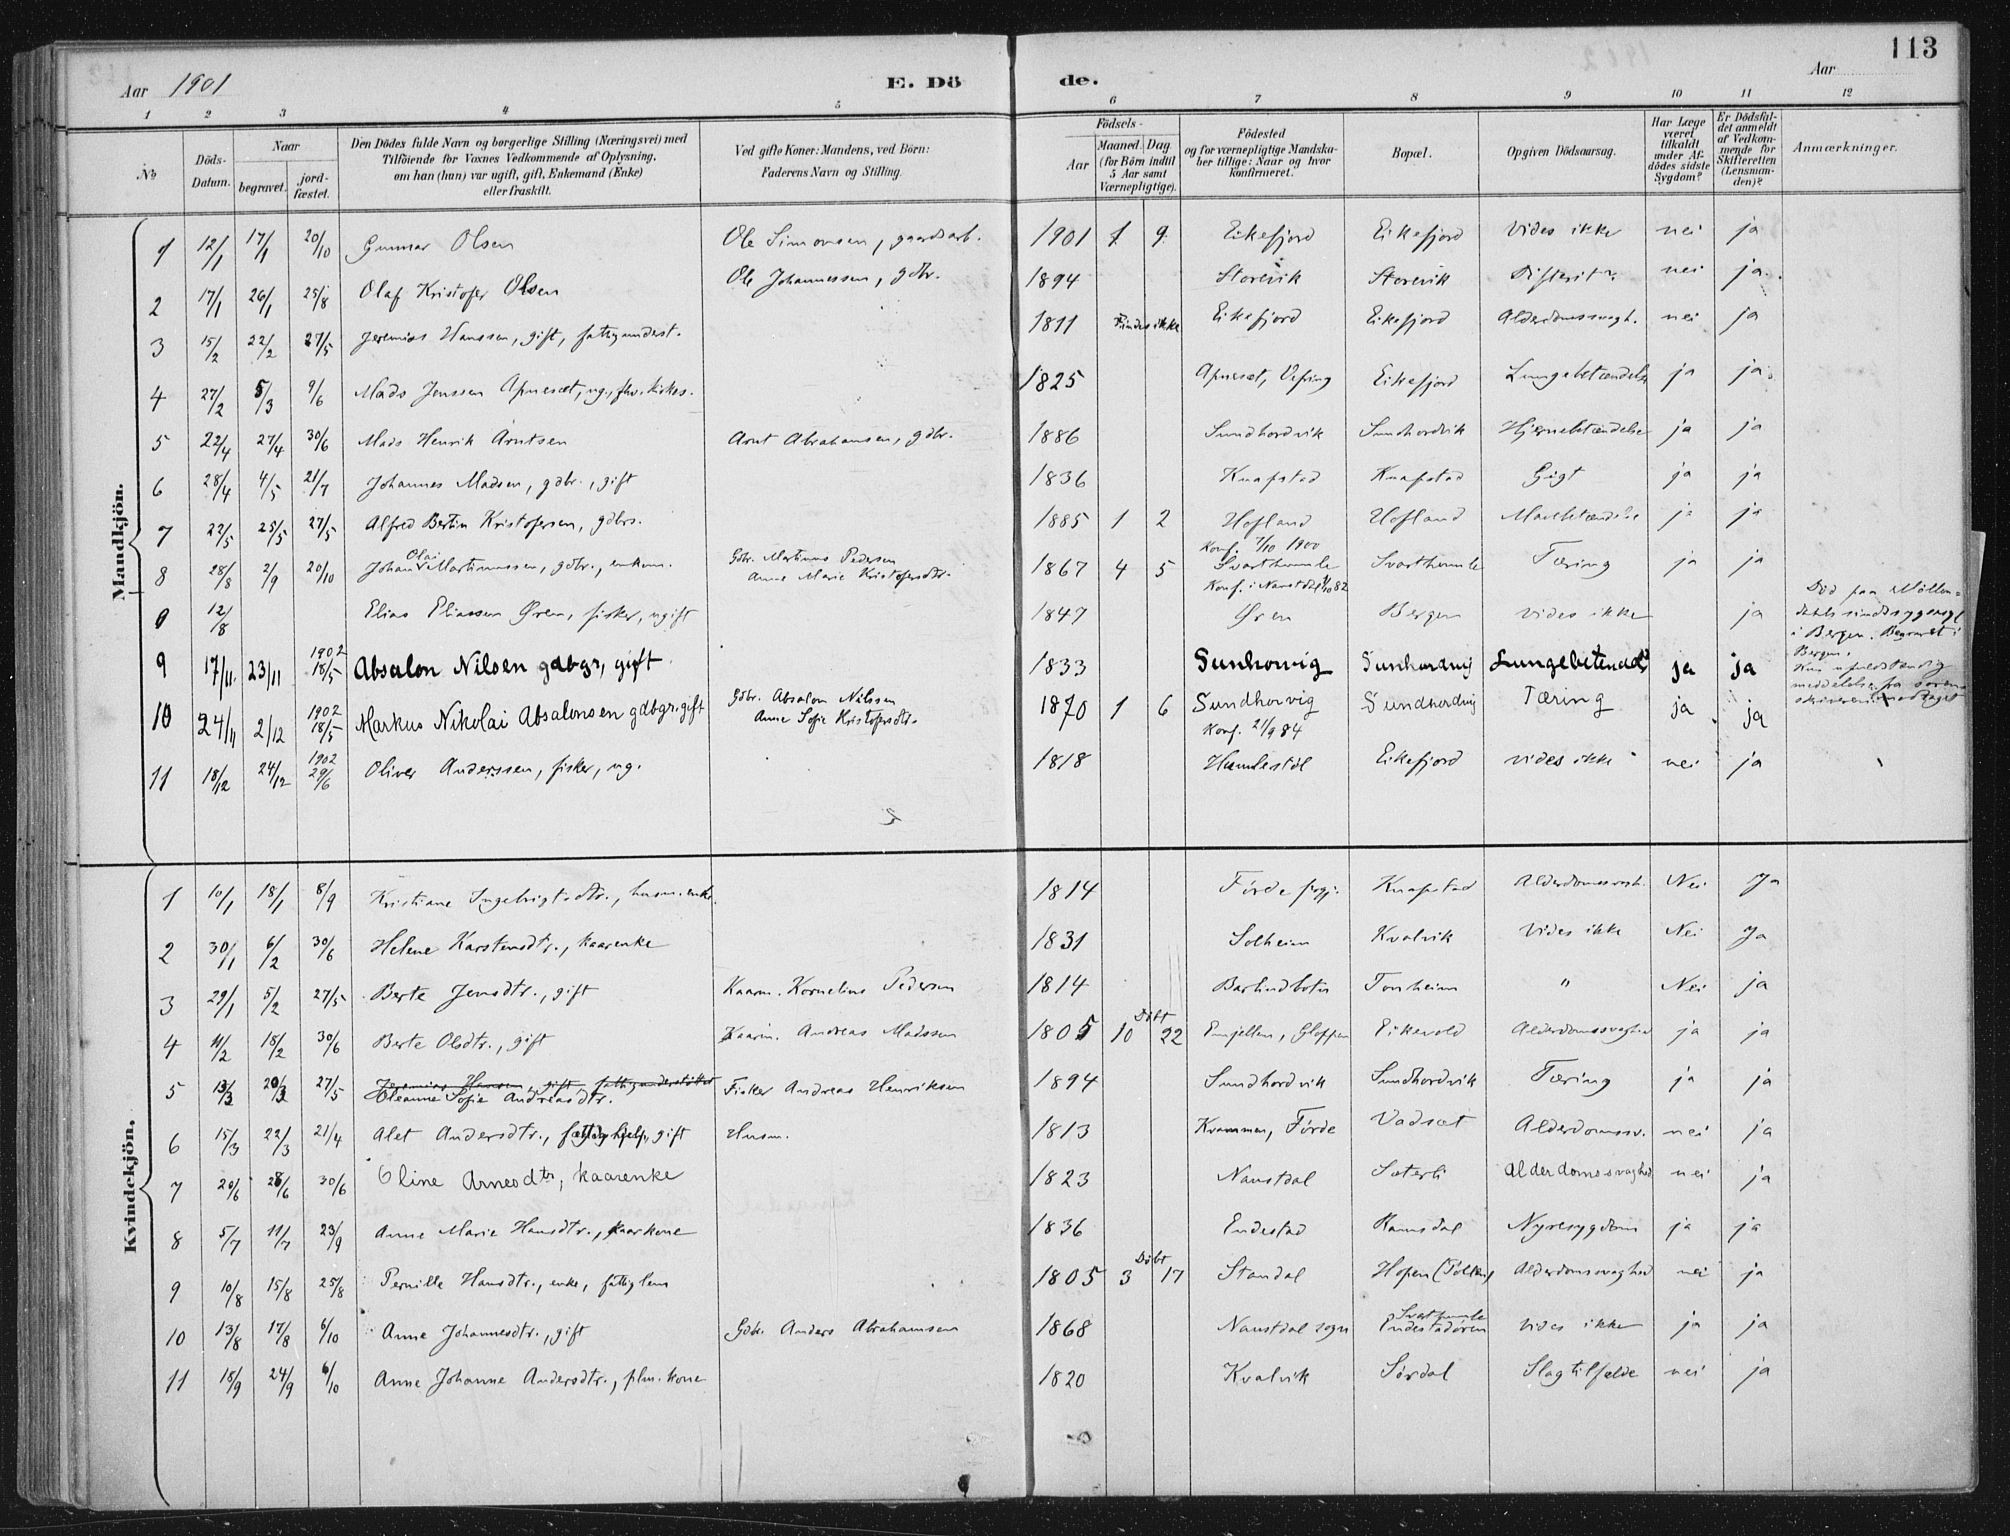 113
Aar 1901 E. Dö de. Aar
1 2 3 4 5 6 7 8 9 10 11 12
No
Döds-Datum.
Naar
begravet.
jord-fæstet.
Den Dödes fulde Navn og borgerlige Stilling (Næringsvei) med
Tilföiende for Voxnes Vedkommende af Oplysning,
om han (hun) var ugift, gift, Enkemand (Enke)
eller fraskilt.
Ved gifte Koner: Mandens, ved Börn:
Faderens Navn og Stilling.
Födsels-
Aar
Maaned. Dag.
(for Börn indtil
5 Aar samt
Værnepligtige).
Födested
og for værnepligtige Mandska-
ber tillige: Naar og hvor
Konfirmeret.
Bopæl.
Opgiven Dödsaarsag.
Har Læge
været
tilkaldt
under Af-
dödes sidste
Sygdom?
Er Dödsfal-
det anmeldt
af Vedkom-
mende for
Skifteretten
(Lensman-
den)?
Anmærkninger.
Mandkjön.
1 12/1 17/1 20/10 Gunnar Olsen Ole Simonsen, gaardsarb. 1901 1 9 Eikefjord Eikefjord Vides ikke nei ja
2 17/1 26/1 25/8 Olaf Kristofer Olsen Ole Johannessen, gdbr. 1894 Storevik Storevik Difterit nei ja
3 15/2 22/2 27/5 Jeremias Hanssen, gift, fattigunderst. 1811 Findes ikke Eikefjord Eikefjord Alderdomssvagh. nei ja
4 27/2 5/3 9/6 Mads Jenssen Apnesæt, ug., fhv. kirkes. 1825 Apnesæt, Vefring Eikefjord Lungebetændelse ja ja
5 22/4 27/4 30/6 Mads Henrik Arntsen Arnt Abrahamsen, gdbr. 1886 Sundhordvik Sundhordvik Hjernebetændelse ja ja
6 28/4 4/5 21/7 Johannes Madsen, gdbr., gift 1836 Knapstad Knapstad Gigt ja ja
7 22/5 25/5 27/5 Alfred Bertin Kristofersen, gdbrs. 1885 1 2 Hofland Hofland Mavebetændelse ja ja
Konf. 7/10 1900
8 28/8 2/9 20/10 Johan Olai Martinussen, gdbr., enkem. Gdbr. Martinus Pedersen 1867 4 5 Svarthumle Svarthumle Tæring ja ja
Anne Marie Kristofersdtr. Konf. i Naustdal 1/10 82
12/8 Elias Eliassen Øren, fisker, ugift 1847 Øren Bergen vides ikke ja Död paa Möllen-
dahls sindssygeasyl
i Bergen. Begravet i
Bergen.
Kun ufuldstændig
meddelelse fra soren-
skriveren modtaget
9 17/11 23/11 1902 18/5 Absalon Nilsen gdbgr, gift 1833 Sunhorvig Sunhordvig ja ja
10 24/11 2/12 1902 18/5 Markus Nikolai Absalonsen gdbgr. gift Gdbr. Absalon Nilssen 1870 1 6 Sundhorvig Sundhordvig Tæring ja ja
Anne Sofie Kristofersdtr. Konf. 21/9 84
11 18/12 24/12 1902 29/6 Oliver Anderssen, fisker, ug. 1818 Humlestöl Eikefjord vides ikke nei ja
Kvindekjön.
1 10/1 18/1 8/9 Kristiane Ingebrigtsdtr., husm. enke. 1814 Förde prgj. Knapstad Alderdomssvagh. Nei Ja
2 30/1 6/2 30/6 Helene Karstensdtr., kaarenke 1831 Solheim Kvalvik Vides ikke Nei Ja
3 29/1 5/2 27/5 Berte Jensdtr., gift Kaarm. Kornelius Pedersen 1814 Barlindbotn Tonheim " Nei ja
4 11/2 18/2 30/6 Berte Olsdtr., gift Kaarm. Andreas Madssen 1805 10 Döbt 22 Emjellen, Gloppen Eikevold Alderdomssvaghed ja ja
5 13/3 20/3 27/5 Jeremias Hansen, gift, fattigunderstöttet Fisker Andreas Henriksen 1894 Sundhordvik Sundhordvik Tæring ja ja
Oleanne Sofie Andreasdtr.
6 15/3 22/3 21/4 Alet Andersdtr., fattighjelp, gift Husm. 1813 Kvammen, Förde Vadsæt Alderdomssv. nei ja
7 20/6 28/6 30/6 Oline Arnesdtr, kaarenke 1823 Naustdal Sæterli Alderdomssvaghed nei ja
8 5/7 11/7 23/9 Anne Marie Hansdtr., kaarkone 1836 Endestad Ramsdal Nyresygdom ja ja
9 10/8 15/8 25/8 Pernille Hansdtr., enke, fattiglem 1805 3 Döbt 17 Standal Hopen Alderdomssvaghed nei ja
10 13/8 17/8 6/10 Anne Johannesdtr., gift Gdbr. Anders Abrahamsen 1868 Naustdal sogn Svarthumle Endestadören Vides ikke ja ja
11 18/9 24/9 6/10 Anne Johanne Andersdtr., plm. kone 1820 Kvalvik Sördal Slagtilfælde nei ja